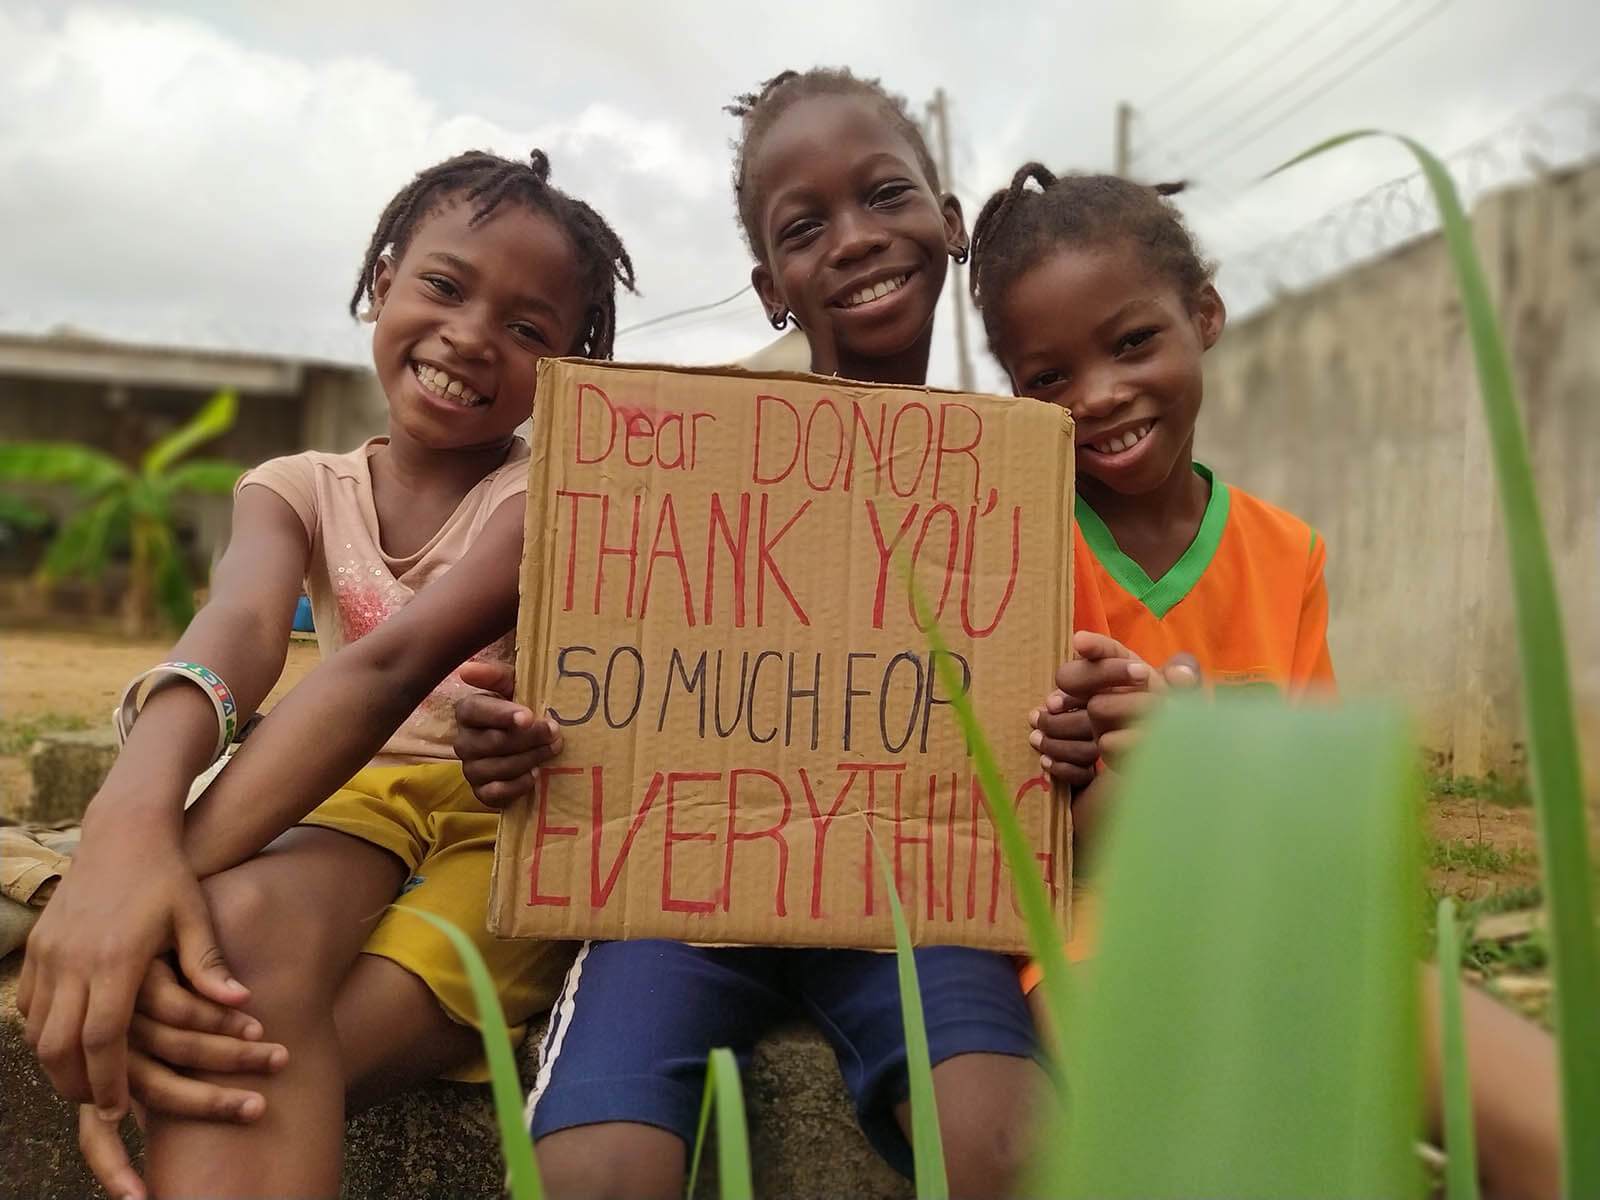 Dear DONOR,
THANK YOU
SO MUCH FOR
EVERYTHING